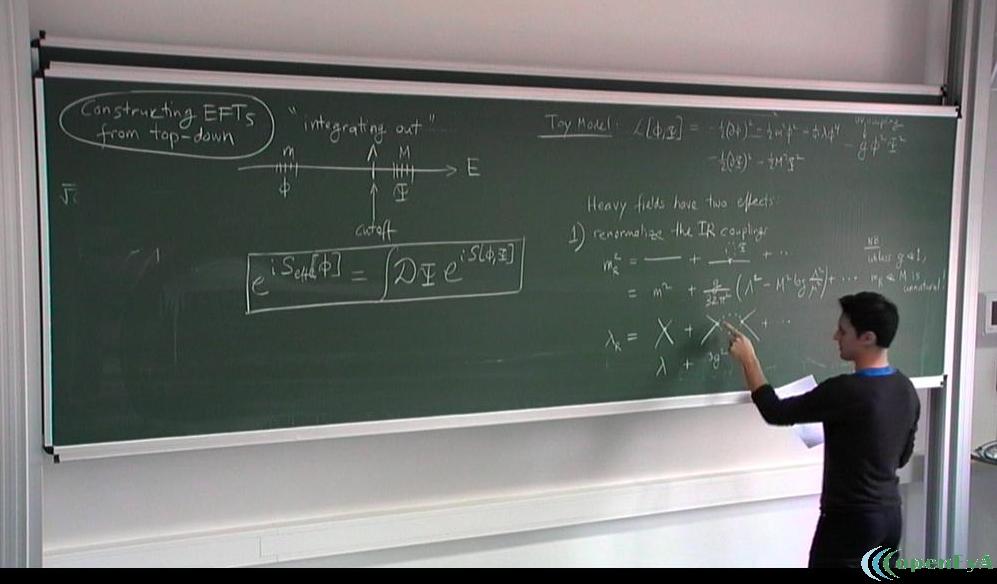 Constructing EFTs
from top-down
"integrating out"
m
M
E
ϕ
Φ
cutoff
e^{iS_eff[ϕ]} = ∫DΦ e^{iS[ϕ,Φ]}
Toy Model: ℒ[ϕ,Φ] = -½(∂ϕ)² - ½m²ϕ² - λϕ⁴
-½(∂Φ)² - ½M²Φ²
- g ϕ²Φ²
Heavy fields have two effects:
1) renormalize the IR couplings
m_R² = + + ..
= m² + g/32π² (Λ² - M² log Λ²/μ²) + ...
NB
unless g≪1,
m_R ≪ M is
unnatural!
λ_R = + + ...
λ + 3g²
openEyA